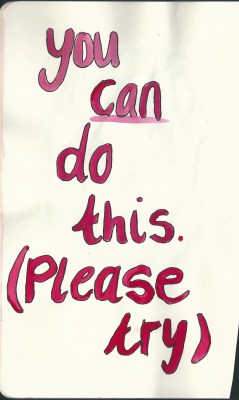 you
can
do
this.
(Please
try)